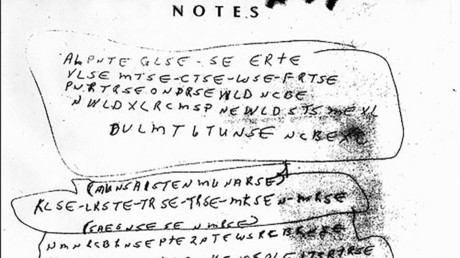 NOTES
ALPNTE GLSE-SE ERTE
VLSE MTSE-CTSE-WSE-FRTSE
PNRTRSEONDRSEWLD NCBE
NWLDXLRCMSP NEWLDSTS MEXL
DULMT6TUNSE NCBEXC
(MUNSAISTENMUNARSE)
KLSE-LRSTE-TRSE-TRSE-MKSEN-MRSE
(SAEGNSE SE N MBSE)
NMNRCBRNSEPTE2PTEWSRCBRNSE